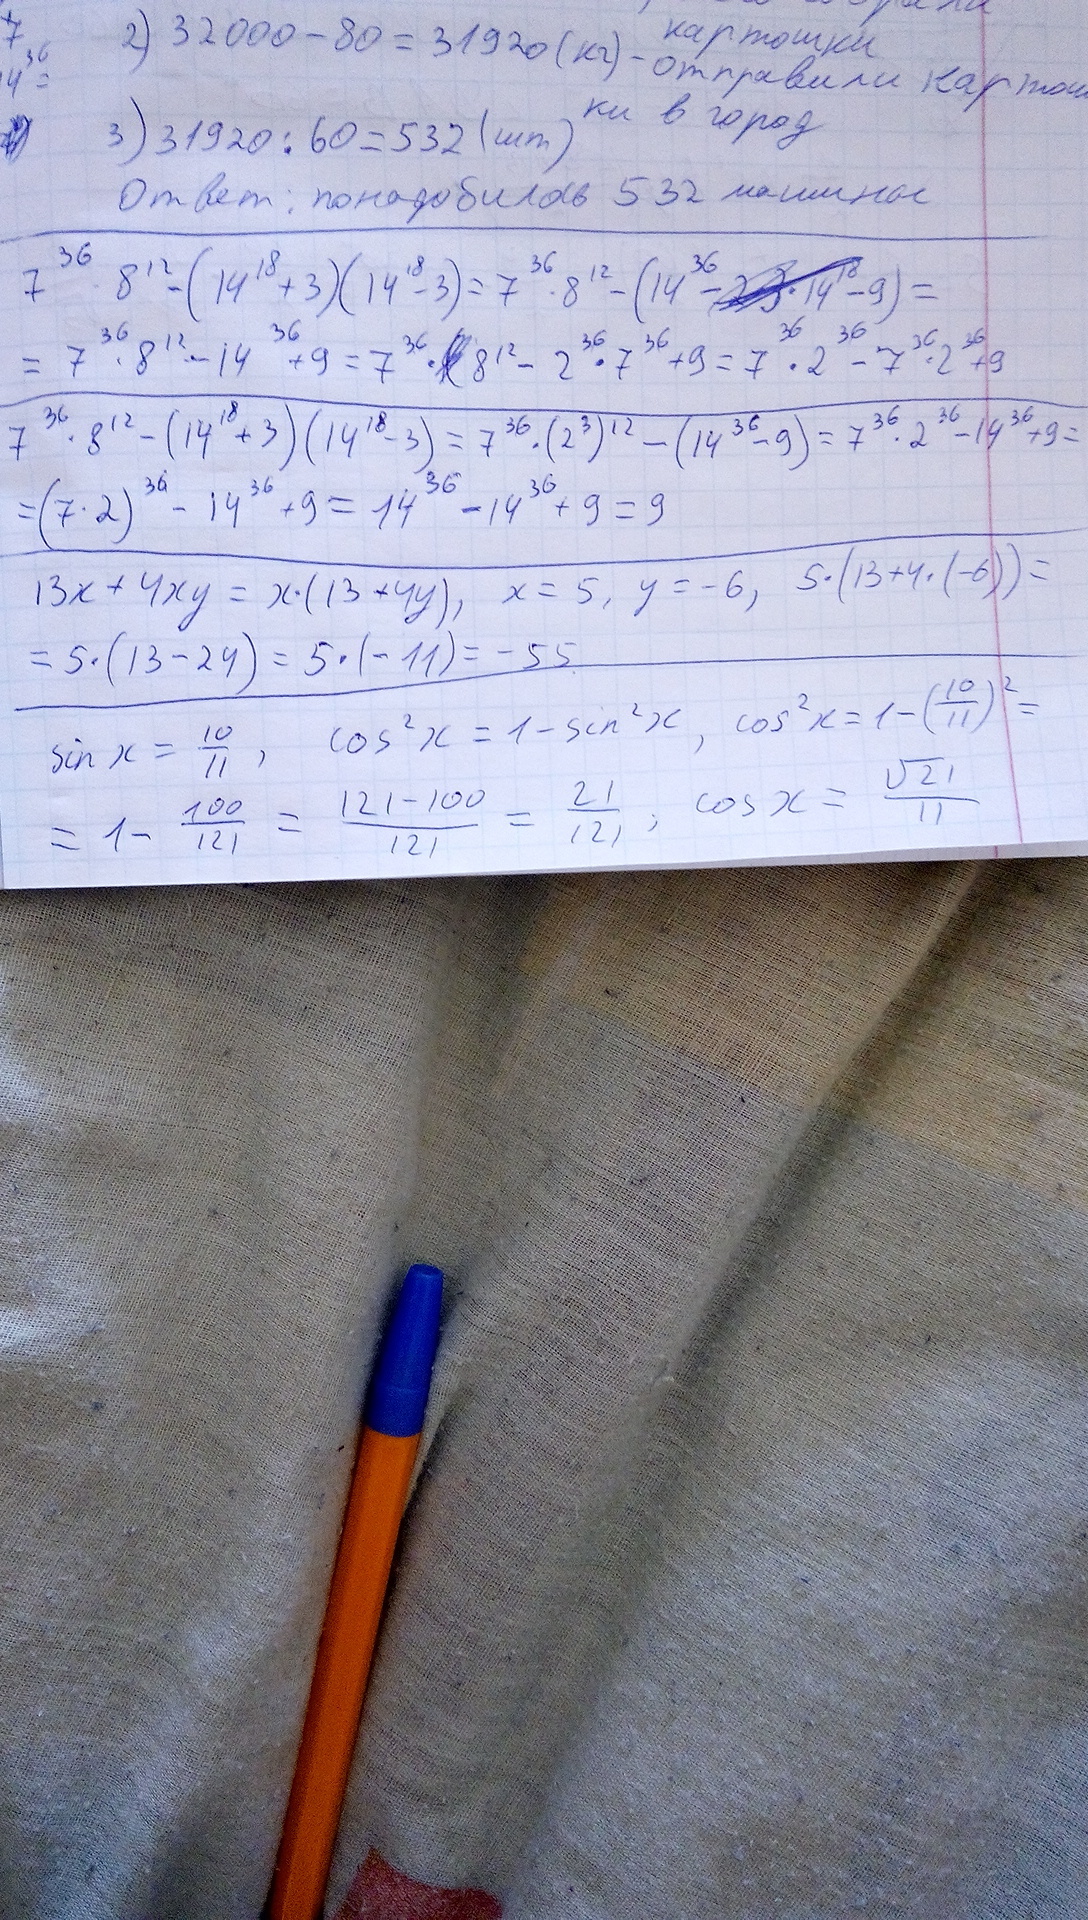 7
14³⁶=
2) 32000-80=31920(кг)-отправили картош
картошки
ки в город
3) 31920:60=532(шт)
Ответ: понадобилась 532 машины
7³⁶·8¹²-(14¹⁸+3)(14¹⁸-3)=7³⁶·8¹²-(14³⁶-9)=
=7³⁶·8¹²-14³⁶+9=7³⁶·8¹²-2³⁶·7³⁶+9=7³⁶·2³⁶-7³⁶·2³⁶+9
7³⁶·8¹²-(14¹⁸+3)(14¹⁸-3)=7³⁶·(2³)¹²-(14³⁶-9)=7³⁶·2³⁶-14³⁶+9=
=(7·2)³⁶-14³⁶+9=14³⁶-14³⁶+9=9
13x+4xy=x·(13+4y), x=5, y=-6, 5·(13+4·(-6))=
=5·(13-24)=5·(-11)=-55
sin x = 10/11, cos²x=1-sin²x, cos²x=1-(10/11)²=
=1-100/121=(121-100)/121=21/121; cos x=√21/11